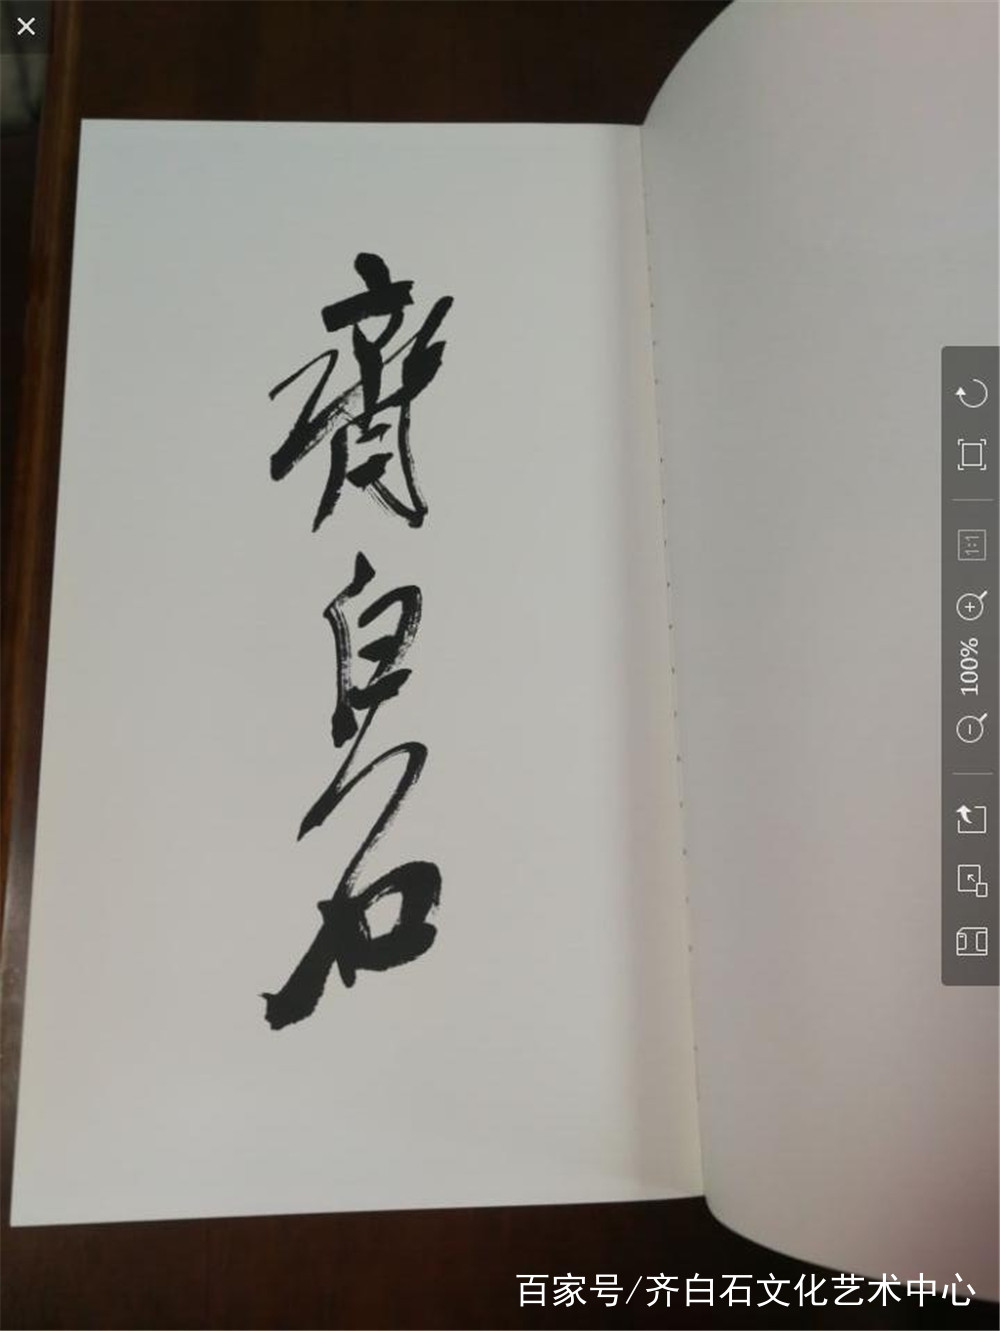 齊白石
1:1
100%
百家号/齐白石文化艺术中心